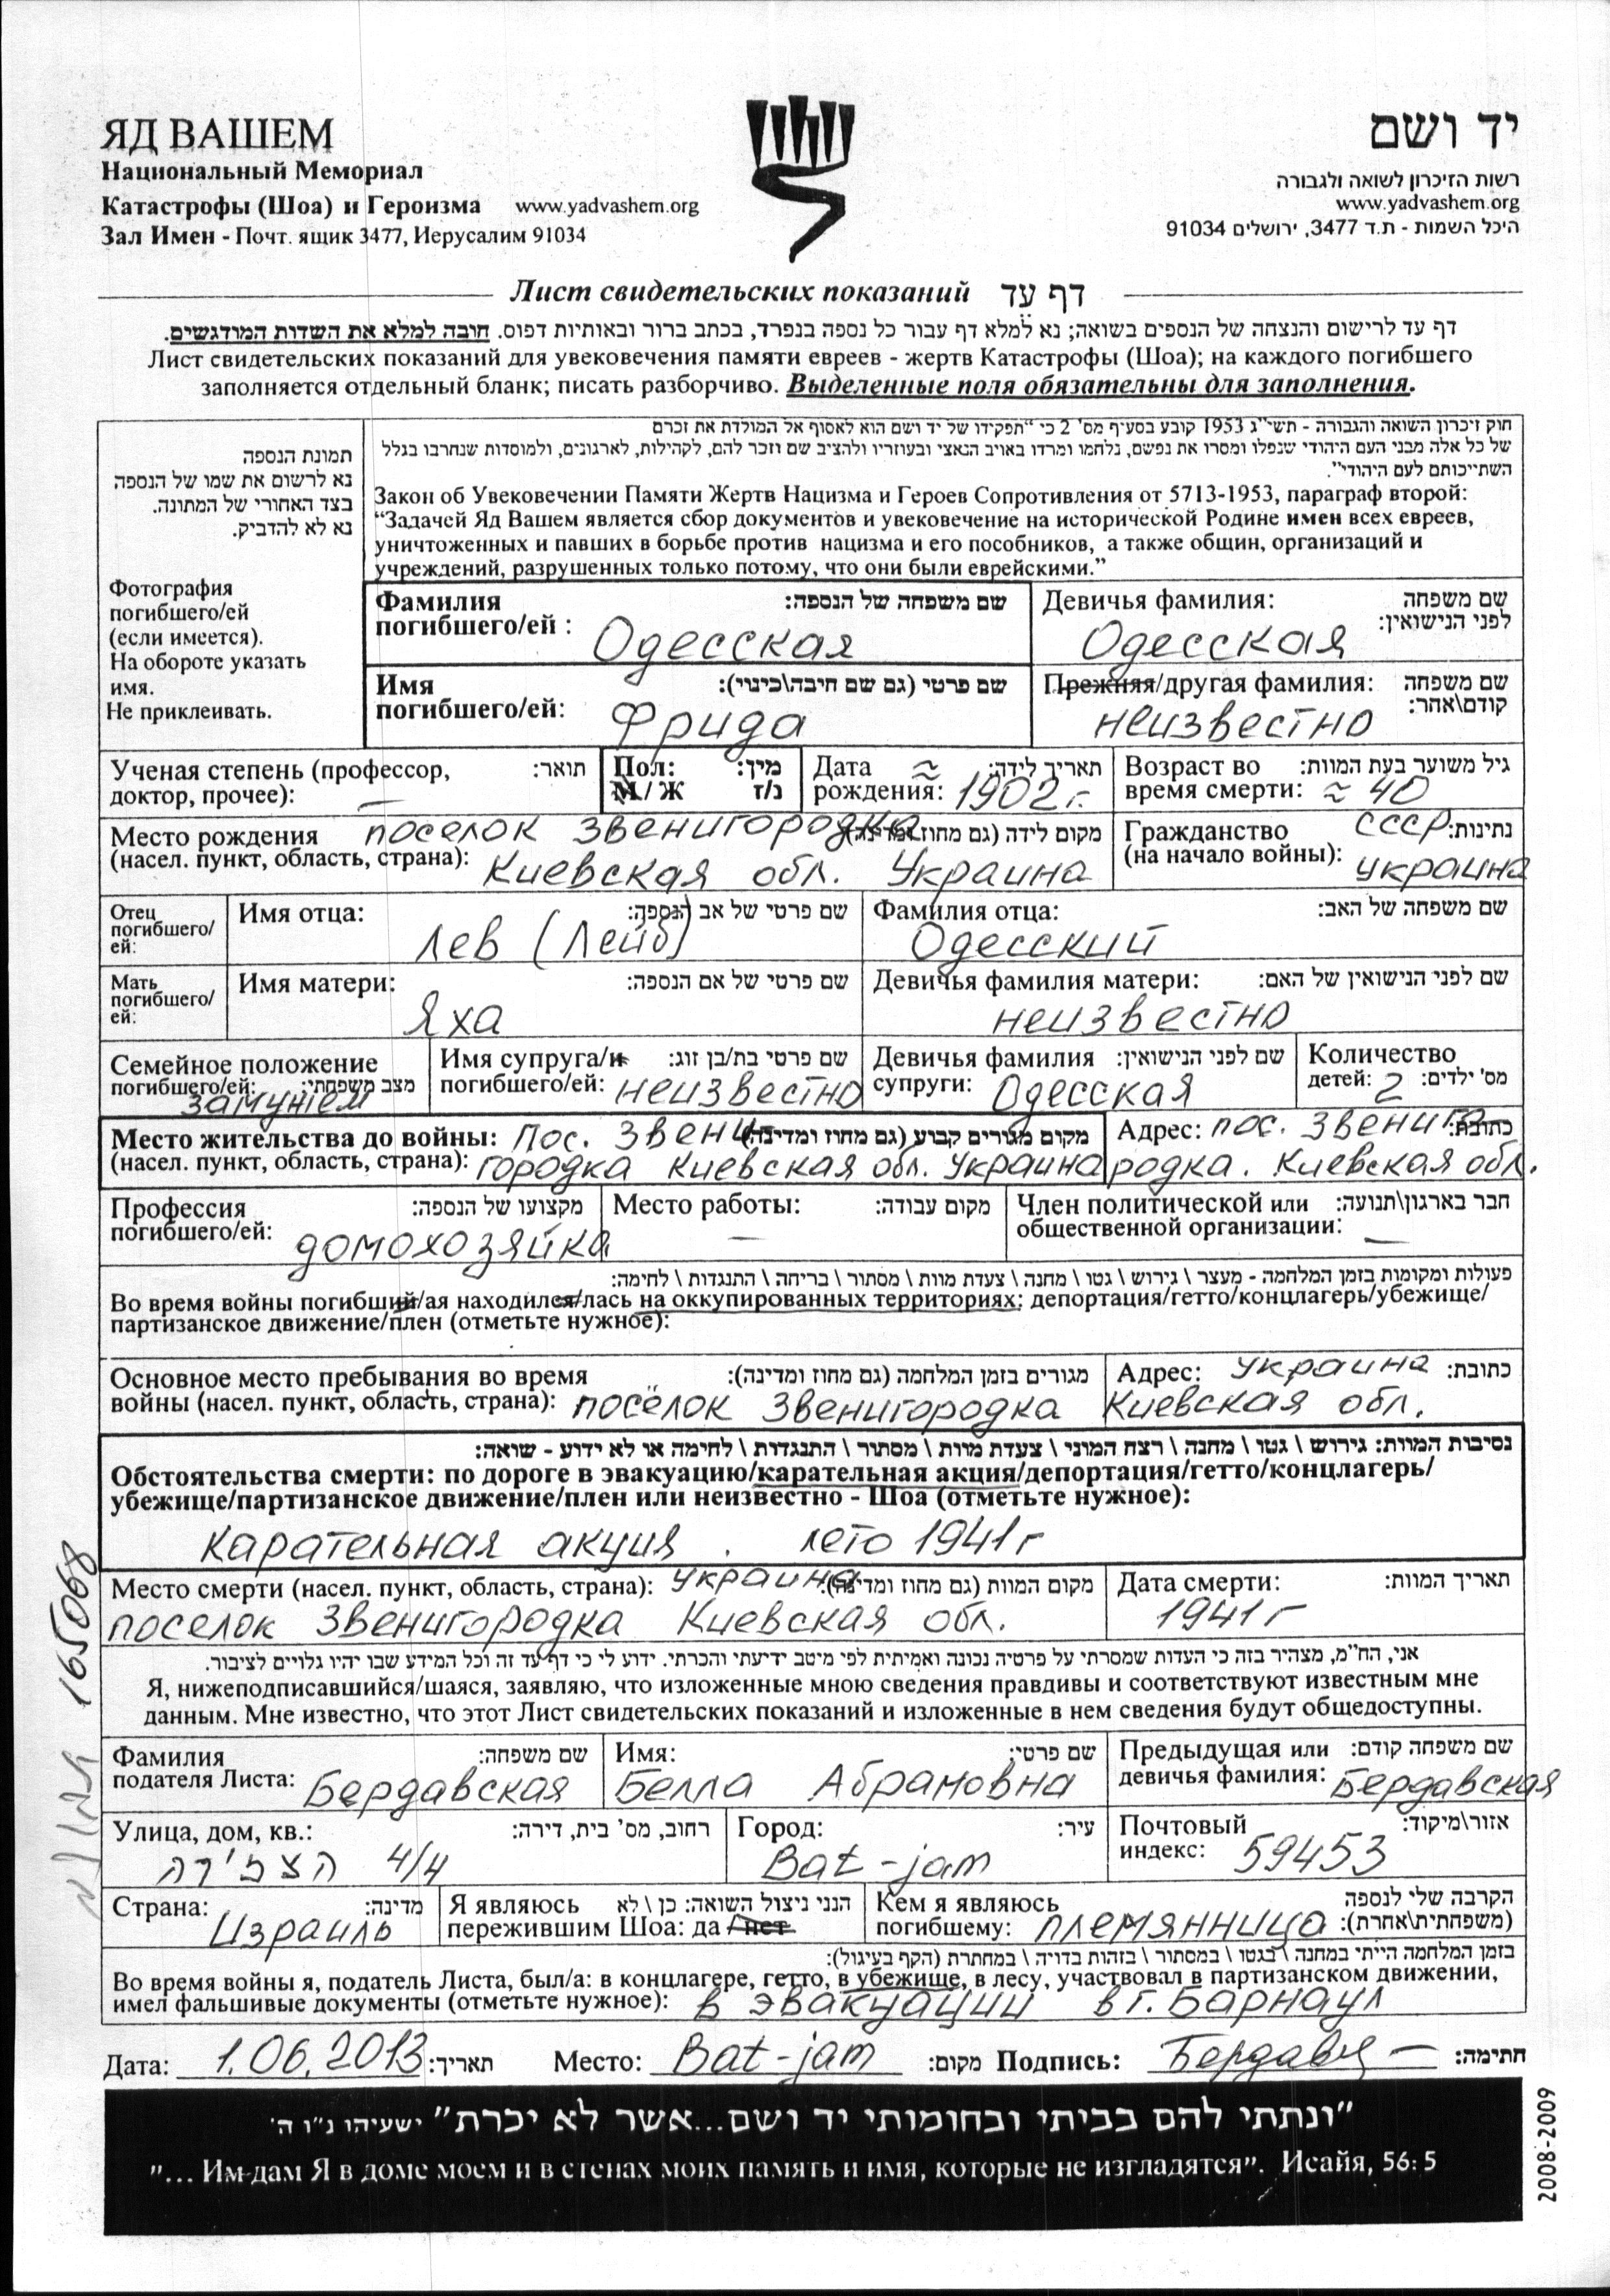 ЯД ВАШЕМ
יד ושם
Национальный Мемориал
Катастрофы (Шоа) и Героизма www.yadvashem.org
Зал Имен - Почт. ящик 3477, Иерусалим 91034
רשות הזיכרון לשואה ולגבורה
www.yadvashem.org
היכל השמות - ת.ד 3477, ירושלים 91034
Лист свидетельских показаний דף עד
דף עד לרישום והנצחה של הנספים בשואה; נא למלא דף עבור כל נספה בנפרד, בכתב ברור ובאותיות דפוס. חובה למלא את השדות המודגשים.
Лист свидетельских показаний для увековечения памяти евреев - жертв Катастрофы (Шоа); на каждого погибшего
заполняется отдельный бланк; писать разборчиво. Выделенные поля обязательны для заполнения.
תמונת הנספה
נא לרשום את שמו של הנספה
בצד האחורי של המתונה.
נא לא להדביק.
Фотография
погибшего/ей
(если имеется).
На обороте указать
имя.
Не приклеивать.
חוק זיכרון השואה והגבורה - תשי"ג 1953 קובע בסעיף מס' 2 כי "תפקידו של יד ושם הוא לאסוף אל המולדת את זכרם
של כל אלה מבני העם היהודי שנפלו ומסרו את נפשם, נלחמו ומרדו באויב הנאצי ובעוזריו ולהציב שם וזכר להם, לקהילות, לארגונים, ולמוסדות שנחרבו בגלל
השתייכותם לעם היהודי".
Закон об Увековечении Памяти Жертв Нацизма и Героев Сопротивления от 5713-1953, параграф второй:
"Задачей Яд Вашем является сбор документов и увековечение на исторической Родине имен всех евреев,
уничтоженных и павших в борьбе против нацизма и его пособников, а также общин, организаций и
учреждений, разрушенных только потому, что они были еврейскими."
Фамилия שם משפחה של הנספה:
погибшего/ей : Одесская
Девичья фамилия: שם משפחה
לפני הנישואין:
Одесская
Имя שם פרטי (גם שם חיבה\כינוי):
погибшего/ей: Фрида
Прежняя/другая фамилия: שם משפחה
קודם\אחר:
неизвестно
Ученая степень (профессор, תואר:
доктор, прочее): —
Пол: מין:
М / Ж ז/נ
Дата תאריך לידה:
рождения: ≈ 1902 г.
Возраст во גיל משוער בעת המוות:
время смерти: ≈ 40
Место рождения поселок Звенигородка מקום לידה (גם מחוז ומדינה):
(насел. пункт, область, страна): Киевская обл. Украина
Гражданство СССР נתינות:
(на начало войны): украина
Отец
погибшего/
ей:
Имя отца: שם פרטי של אב הנספה:
Лев (Лейб)
Фамилия отца: שם משפחה של האב:
Одесский
Мать
погибшего/
ей:
Имя матери: שם פרטי של אם הנספה:
Яха
Девичья фамилия матери: שם לפני הנישואין של האם:
неизвестно
Семейное положение
погибшего/ей: מצב משפחתי:
замужем
Имя супруга/и שם פרטי בת/בן זוג:
погибшего/ей: неизвестно
Девичья фамилия שם לפני הנישואין:
супруги: Одесская
Количество
детей: 2 מס' ילדים:
Место жительства до войны: Пос. Звени- מקום מגורים קבוע (גם מחוז ומדינה):
(насел. пункт, область, страна): городка Киевская обл. Украина
Адрес: пос. Звениго כתובת:
родка. Киевская обл.
Профессия מקצועו של הנספה:
погибшего/ей: домохозяйка
Место работы: מקום עבודה:
—
Член политической или חבר בארגון\תנועה:
общественной организации: —
פעולות ומקומות בזמן המלחמה - מעצר \ גירוש \ גטו \ מחנה \ צעדת מוות \ מסתור \ בריחה \ התנגדות \ לחימה:
Во время войны погибший/ая находился/лась на оккупированных территориях: депортация/гетто/концлагерь/убежище/
партизанское движение/плен (отметьте нужное):
Основное место пребывания во время מגורים בזמן המלחמה (גם מחוז ומדינה):
войны (насел. пункт, область, страна): посёлок Звенигородка
Адрес: Украина כתובת:
Киевская обл.
נסיבות המוות: גירוש \ גטו \ מחנה \ רצח המוני \ צעדת מוות \ מסתור \ התנגדות \ לחימה או לא ידוע - שואה:
Обстоятельства смерти: по дороге в эвакуацию/карательная акция/депортация/гетто/концлагерь/
убежище/партизанское движение/плен или неизвестно - Шоа (отметьте нужное):
Карательная акция . лето 1941 г
Место смерти (насел. пункт, область, страна): Украина מקום המוות (גם מחוז ומדינה):
поселок Звенигородка Киевская обл.
Дата смерти: תאריך המוות:
1941 г
אני, הח"מ, מצהיר בזה כי העדות שמסרתי על פרטיה נכונה ואמיתית לפי מיטב ידיעתי והכרתי. ידוע לי כי דף עד זה וכל המידע שבו יהיו גלויים לציבור.
Я, нижеподписавшийся/шаяся, заявляю, что изложенные мною сведения правдивы и соответствуют известным мне
данным. Мне известно, что этот Лист свидетельских показаний и изложенные в нем сведения будут общедоступны.
Фамилия שם משפחה:
подателя Листа: Бердавская
Имя: שם פרטי:
Белла Абрамовна
Предыдущая или שם משפחה קודם:
девичья фамилия: Бердавская
Улица, дом, кв.: רחוב, מס' בית, דירה:
הצפירה 4/4
Город: עיר:
Bat-jam
Почтовый אזור\מיקוד:
индекс: 59453
Страна: מדינה:
Израиль
Я являюсь הנני ניצול השואה: כן \ לא
пережившим Шоа: да / нет
Кем я являюсь הקרבה שלי לנספה
погибшему: племянница (משפחתית\אחרת):
בזמן המלחמה הייתי במחנה \ בגטו \ במסתור \ בזהות בדויה \ במחתרת (הקף בעיגול):
Во время войны я, податель Листа, был/а: в концлагере, гетто, в убежище, в лесу, участвовал в партизанском движении,
имел фальшивые документы (отметьте нужное): в эвакуации в г. Барнаул
Дата: 1.06.2013 תאריך: Место: Bat-jam מקום: Подпись: Бердавс— חתימה:
"ונתתי להם בביתי ובחומותי יד ושם...אשר לא יכרת" ישעיהו נ"ו ה'
"... Им дам Я в доме моем и в стенах моих память и имя, которые не изгладятся". Исайя, 56: 5
165068
2008-2009